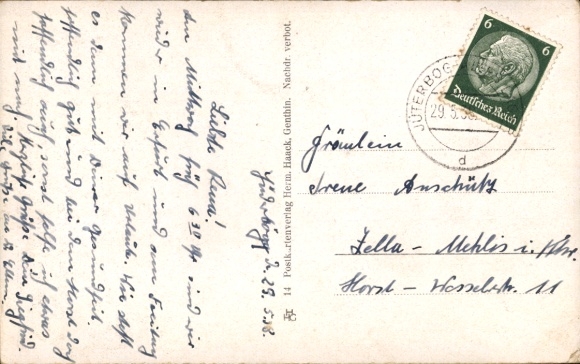 Jüterbog, d. 29.5.38.
Liebe Rena!
den Mittwoch früh 6 30 Uhr sind wir
wieder in Erfurt und am Freitag
kommen wir auf Urlaub. Wie steht
es denn mit Deiner Gesundheit.
hoffentlich gut und bei den
hoffentlich auch sonst
mit mir. Herzliche Grüße Dein Siegfried
Viele Grüße an die Eltern
14 Postkartenverlag Herm. Haack, Genthin. Nachdr. verbot.
JÜTERBOG
29.5.38
d
6 6
Deutsches Reich
Fräulein
Irene Anschütz
Zella-Mehlis i. Thür.
Horst-Wesselstr. 11